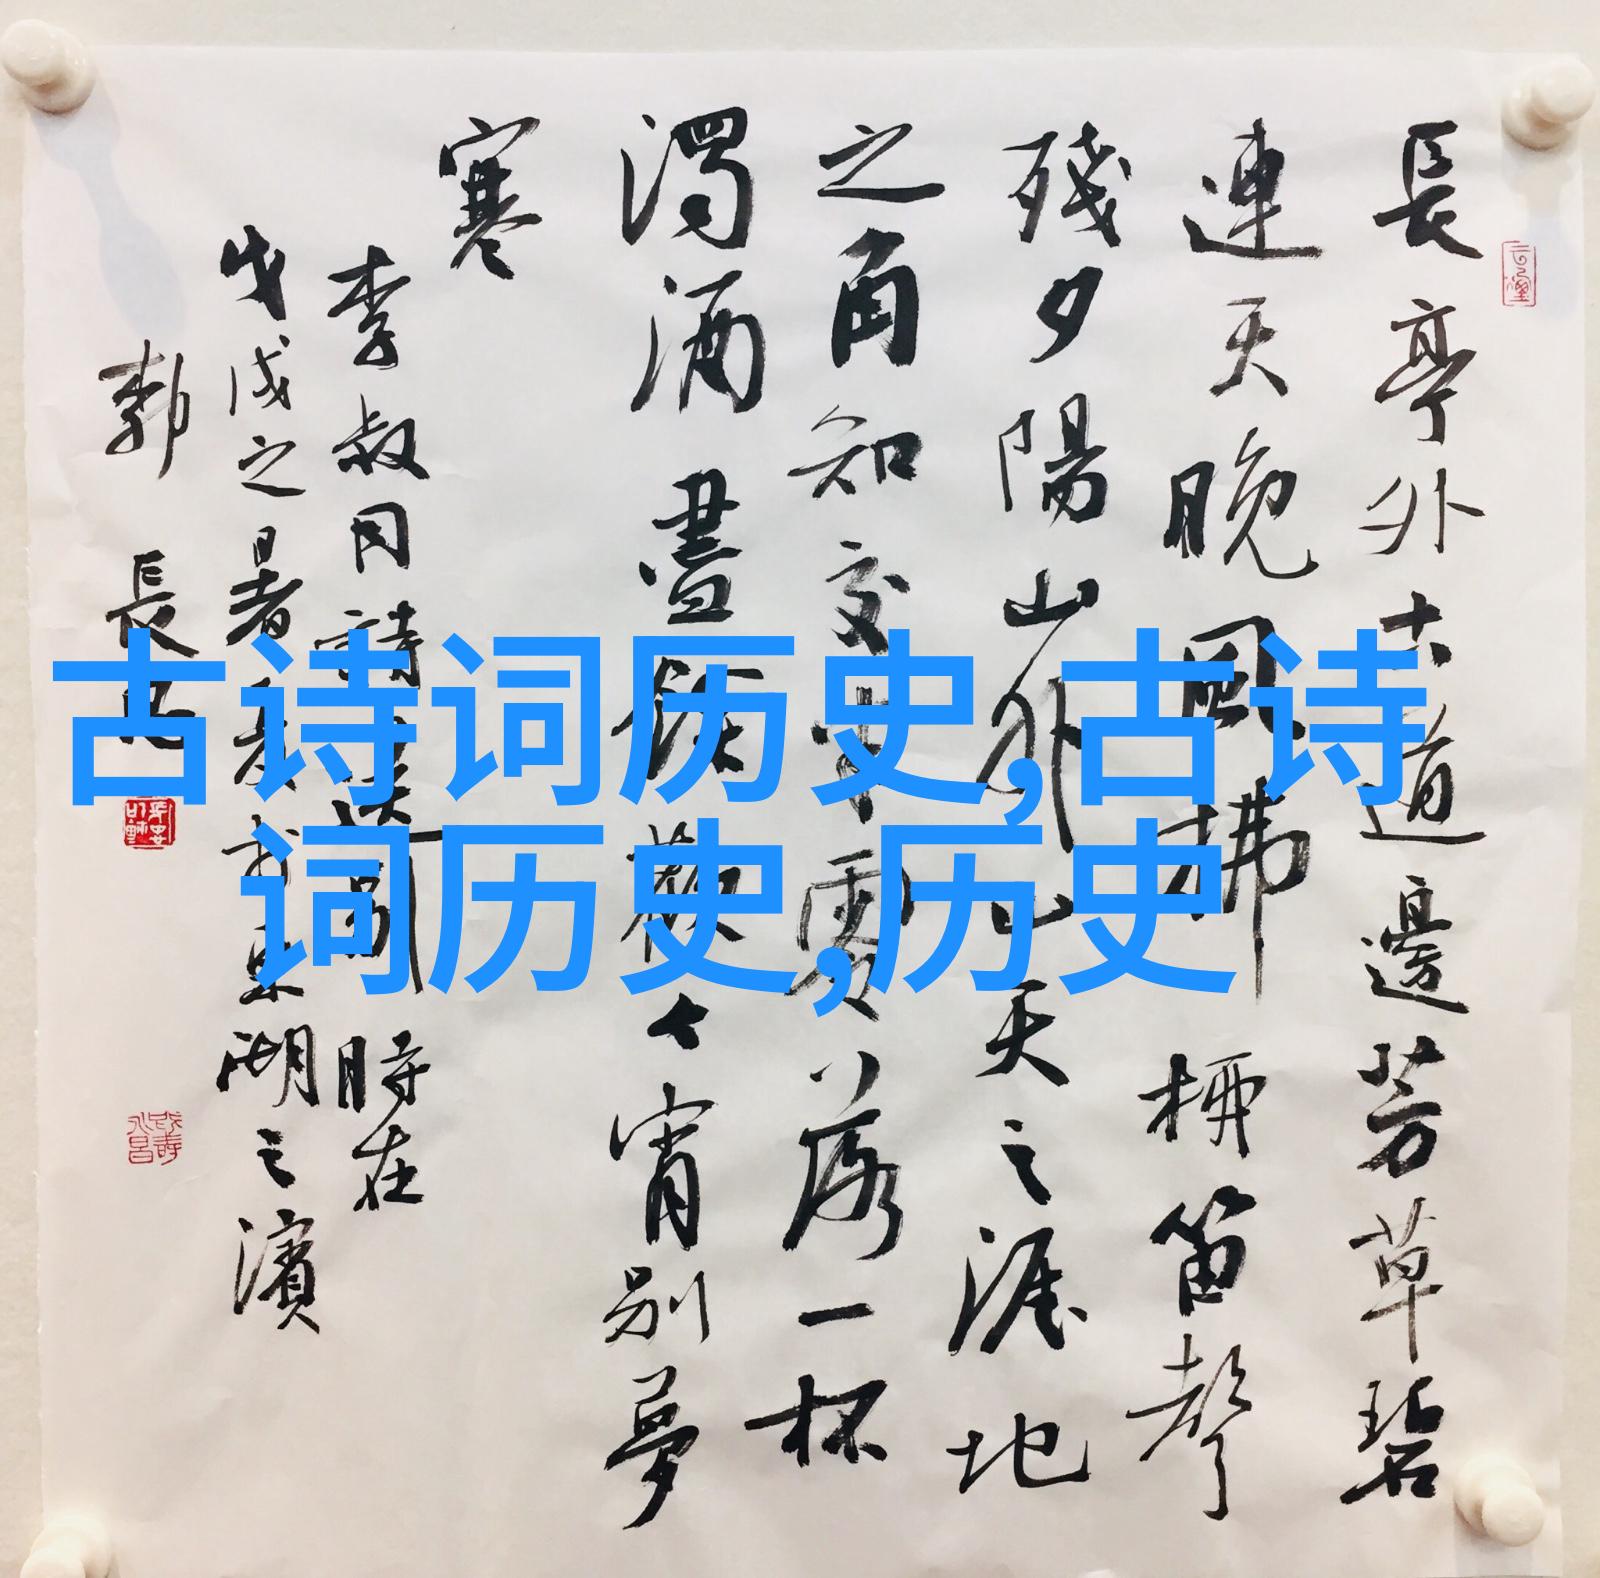 長亭外古道邊芳草碧
連天晚風拂柳笛聲
殘夕陽山外山天之涯地
之角知交半零落一杯
濁酒盡餘歡今宵別夢
寒
李叔同詩送別 時在
戊戌之暑 東湖之濱
長
古诗词历史,古诗
词历史,历史